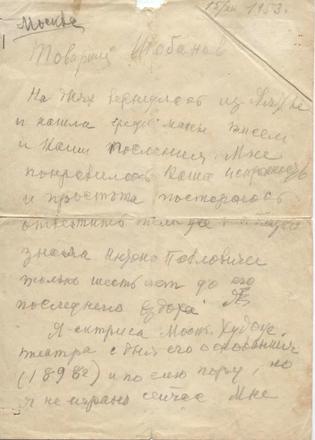 Москва
15/XII 1953.
Товарищ Шобанов
На днях вернулась из
и нашла среди массы писем
и Ваши послания. Мне
понравилась Ваша искренность
и простота постараюсь
ответить
знала Антона Павловича
только шесть лет до его
последнего вздоха.
Я актриса Моск. Худож.
театра с дня его основания
(1898г) и по сию пору, но
я не играю сейчас Мне